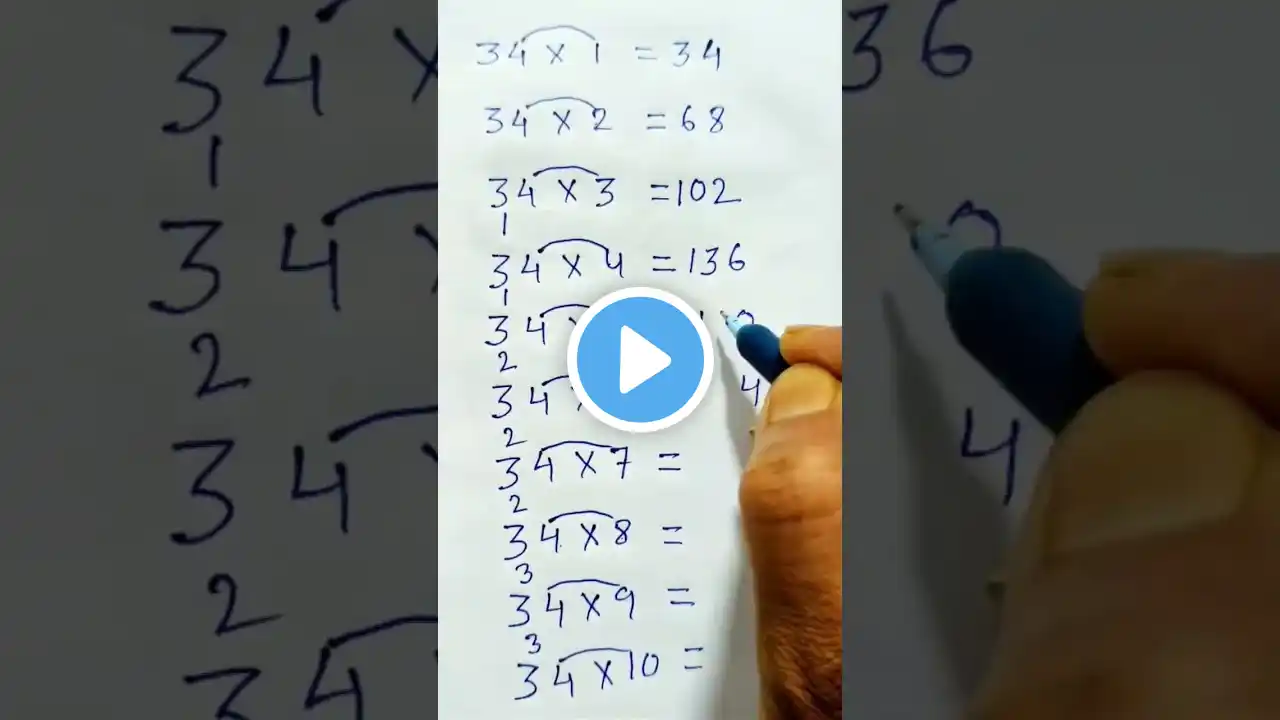 34 × 1 = 34
34 × 2 = 68
34 × 3 = 102
1
34 × 4 = 136
1
34
2
34 4
2
34 × 7 =
2
34 × 8 =
3
34 × 9 =
3
34 × 10 =